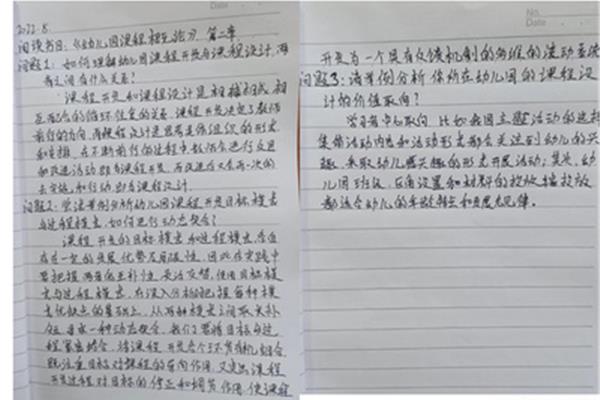 2022.8.
阅读书目:《幼儿园课程概论》 第二章
问题1: 如何理解幼儿园课程开发与课程设计,两
者之间有什么关系?
课程开发和课程设计是相辅相成、相
互融合的循环往复的关系,课程开发决定了教师
前行的方向,而课程设计是思考是组织的形式
和支撑,在不断前行的过程中教师会进行反思
和改进活动即为课程开发,而改进后又会再一次的
去实施和行动,即为课程设计。
问题2: 尝试举例分析幼儿园课程开发目标模式
与过程模式,如何进行动态整合?
课程开发的目标模式和过程模式,各自
存在一定的发展优势及局限性,因此在实践中
要把握两者的互补性,灵活反思,使用目标模
式与过程模式,在深入分析把握每种模
式优缺点的基础上,从两种模式之间取长补
短,寻求一种动态整合,我们要将目标与过
程紧密结合,将课程开发各个环节有机组合,
既注重目标对课程的导向作用,又突出课程
开发过程对目标的修正和调节作用,使课程
No.
Date
开发为一个具有反馈机制的多维的流动系统
问题3: 请举例分析你所在幼儿园的课程设
计的价值取向?
学习者中心取向,比如我园主题活动的选择
集体活动内容和活动形式都会关注到幼儿的兴
趣,采取幼儿感兴趣的形式开展活动;其次,幼
儿园班级、区角设置和材料的投放
都适合幼儿的年龄特点和发展规律。